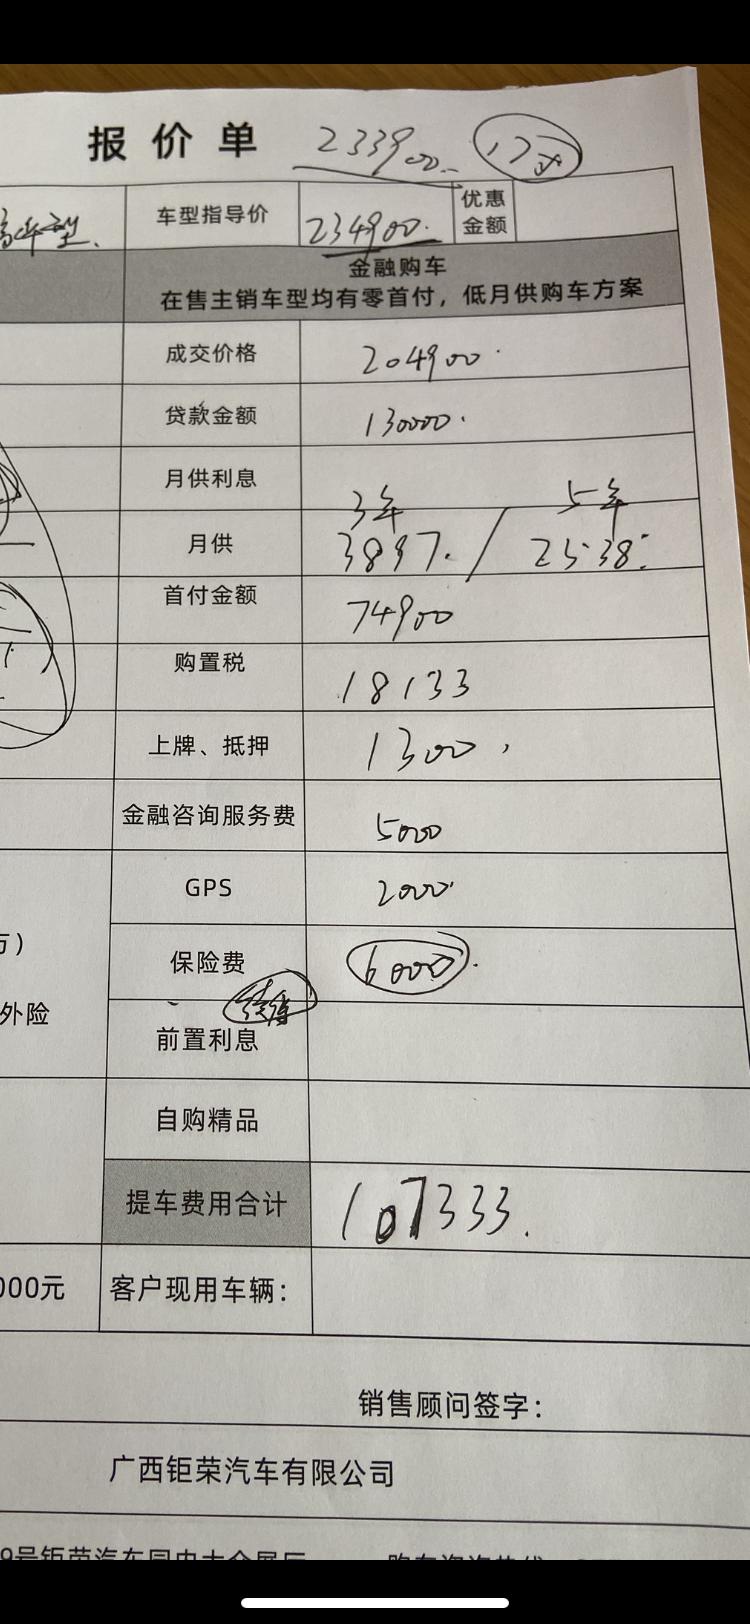 报价单 233900.-
车型指导价 234900. 优惠金额
金融购车
在售主销车型均有零首付，低月供购车方案
成交价格 204900.
贷款金额 130000.
月供利息
3年 5年
月供 3897. / 2538.
首付金额 74900
购置税 18133
上牌、抵押 1300
金融咨询服务费 5000
GPS 2000
保险费 6000.
外险
前置利息
自购精品
提车费用合计 107333.
000元 客户现用车辆：
销售顾问签字：
广西钜荣汽车有限公司